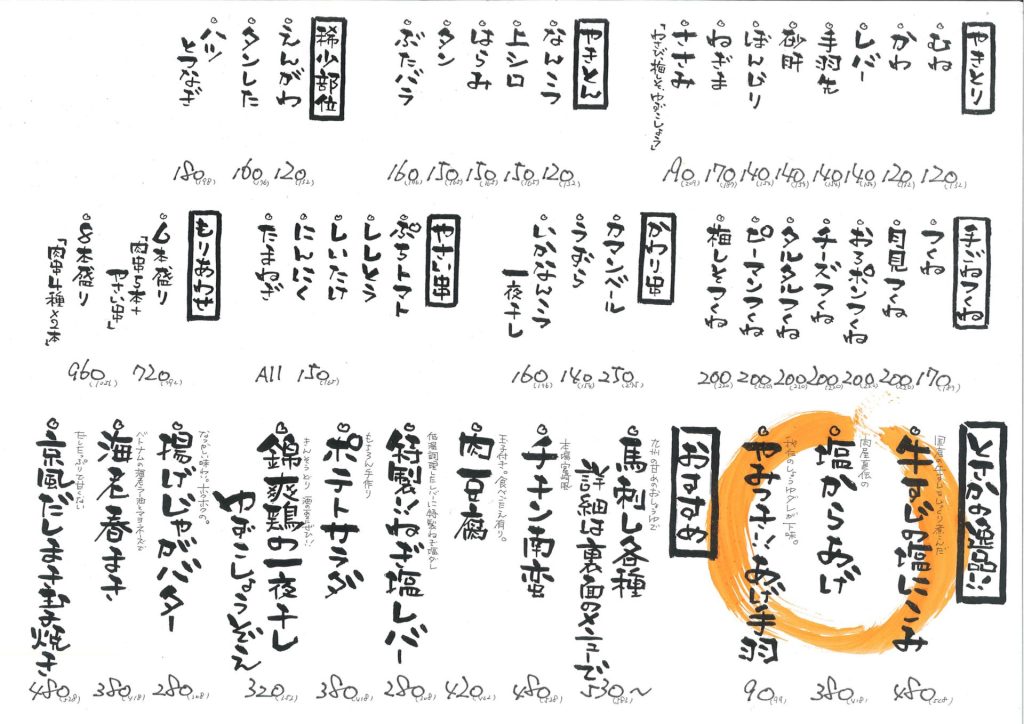 やきとり
むね 120(132)
かわ 120(132)
レバー 140(154)
手羽先 140(154)
砂肝 140(154)
ぼんじり 140(154)
ねぎま 170(187)
ささみ
「わさび・梅しそ・ゆずこしょう」
やきとん
なんこつ 120(132)
上シロ 150(165)
はらみ 150(165)
タン 150(165)
ぶたバラ 160(176)
稀少部位
えんがわ 120(132)
タンした 160(176)
ハツ
とつなぎ 180(198)
手ごねつくね
つくね 170(187)
月見つくね 200(220)
おろポンつくね 200(220)
チーズつくね 200(220)
タルタルつくね 200(220)
ピーマンつくね 200(220)
梅しそつくね 200(220)
かわり串
カマンベール 250(275)
うずら 140(154)
いかなんこつ
一夜干し 160(176)
やさい串
ぷちトマト
ししとう
しいたけ
にんにく
たまねぎ
All 150(165)
もりあわせ
6本盛り 720(792)
「肉串5本+
やさい串」
8本盛り 960(1056)
「肉串4種×2本」
とさかの逸品!!
牛すじの塩にこみ 480(528)
塩からあげ 380(418)
秘伝のしょうゆダレが下味。
やみつき!!あげ手羽 90(99)
おすすめ
九州の甘めのおしょうゆで
馬刺し各種
詳細は裏面のメニューで 530〜(583)
本場宮崎風
チキン南蛮 480(528)
玉子付き。食べごたえ有り。
肉豆腐 420(462)
低温調理したレバーに特製ねぎ塩ダレ
特製!!ねぎ塩レバー 280(308)
もちろん手作り
ポテトサラダ 380(418)
錦爽鶏の一夜干し
ゆずこしょうぞえ 320(352)
なつかしい味わい。
揚げじゃがバター 280(308)
海老春まき 380(418)
京風だしまき玉子焼き 480(528)